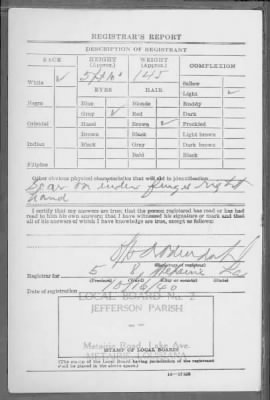 REGISTRAR'S REPORT
DESCRIPTION OF REGISTRANT
RACE HEIGHT (Approx.) WEIGHT (Approx.) COMPLEXION
White ✓ 5 ft 10" 145 Sallow
EYES HAIR Light ✓
Negro Blue Blonde Ruddy
Gray ✓ Red Dark
Oriental Hazel Brown ✓ Freckled
Brown Black Light brown
Indian Black Gray Dark brown
Bald Black
Filipino
Other obvious physical characteristics that will aid in identification
Scar on index finger right
hand
I certify that my answers are true; that the person registered has read or has had
read to him his own answers; that I have witnessed his signature or mark and that
all of his answers of which I have knowledge are true, except as follows:
(Signature of registrar)
Registrar for 5 8 Metairie La
(Precinct) (Ward) (City or county) (State)
Date of registration 10/16/40
LOCAL BOARD No. 2
JEFFERSON PARISH
Metairie Road, Lake Ave.
METAIRIE, LOUISIANA
STAMP OF LOCAL BOARD
(The stamp of the Local Board having jurisdiction of the registrant
shall be placed in the above space.)